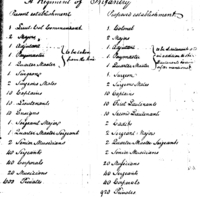 A Regiment of Infantry
Present establishment
Proposed establishment
1 Lieut. Col. Commandant
2 Majors
1 Adjutant
1 Paymaster
1 Quarter Master
to be taken from the line
1 Surgeon
2 Surgeons Mates
10 Captains
10 Lieutenants
10 Ensigns
1 Sergeant Major
1 Quarter Master Sergeant
2 Senior Musicians
40 Sergeants
40 Corporals
20 Musicians
Privates
1 Colonel
2 Majors
1 Adjutant
1 Paymaster
1 Quarter Master
1 Surgeon
2 Surgeons Mates
10 Captains
10 First Lieutenants
10 Second Lieutenants
2 Cadets
2 Sergeant Majors
2 Quarter Master Sergeants
2 Senior Musicians
20 Musicians
40 Sergeants
40 Corporals
920 Privates